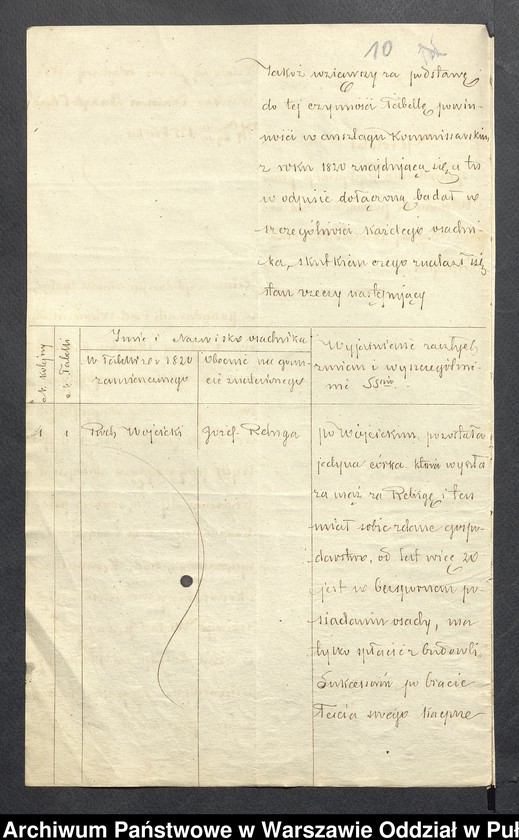 10
Jakoż wziąwszy za podstawę
do tej czynności Tabellę powin-
ności w anszlagu Kommissarskim
z roku 1820 znajdującą się, a tu
w odpisie dołączoną badał w
szczególności każdego osadni-
ka, skutkiem czego znalazł się
stan rzeczy następujący
Imie i Nazwisko osadnika
w Tabelli z r 1820
zamieniczonego
Obecnie na grun-
cie znalezionego
Wyjaśnienie zaszłych
zmian i wyszczególnie-
nie SSrów.
№ kolejny
№ Tabelli
1 1 Roch Wojcicki Jozef Rebiga
po Wójcickim pozostała
jedyna córka która wyszła
za mąż za Rebigę i ten
miał sobie zdane gospo-
darstwo, od lat więc 20
jest w bezspornem po-
siadaniu osady, ma
tylko spłacić z budowli
Sukcessorów po bracie
Teścia swego Kacprze
Archiwum Państwowe w Warszawie Oddział w Puł